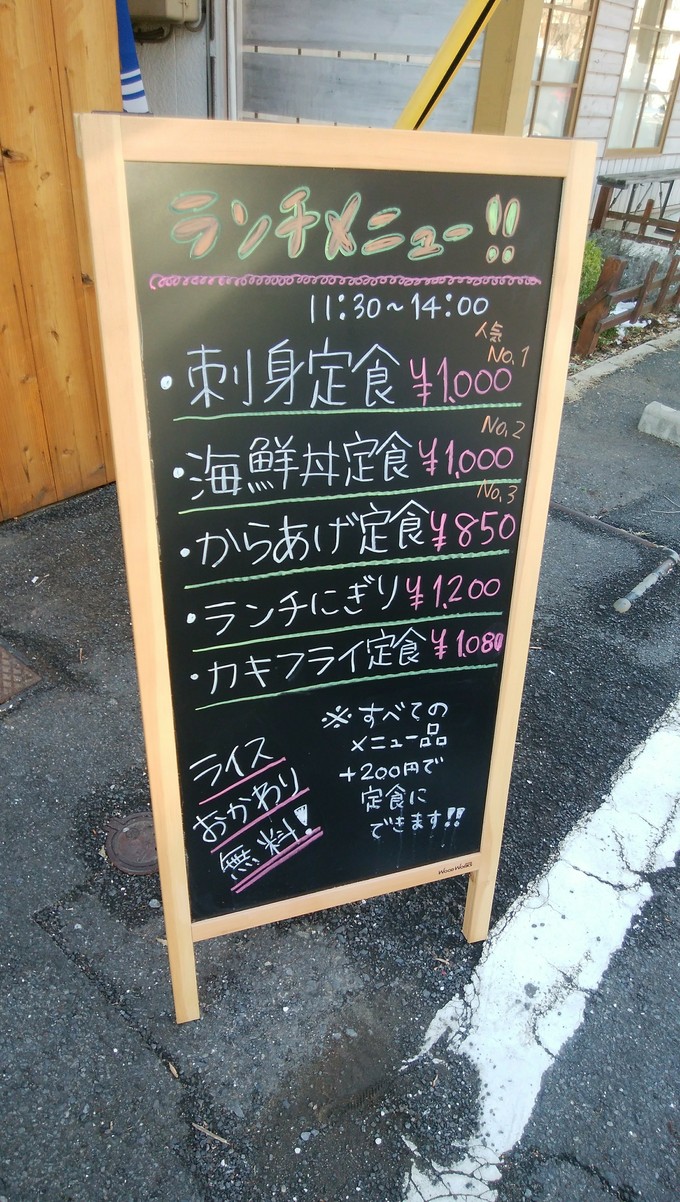 ランチメニュー!!
11:30~14:00
人気
No.1
・刺身定食 ¥1,000
No.2
・海鮮丼定食 ¥1,000
No.3
・からあげ定食 ¥850
・ランチにぎり ¥1,200
・カキフライ定食 ¥1,080
※すべての
メニュー品
+200円で
定食に
できます!!
ライス
おかわり
無料!
Wood Works